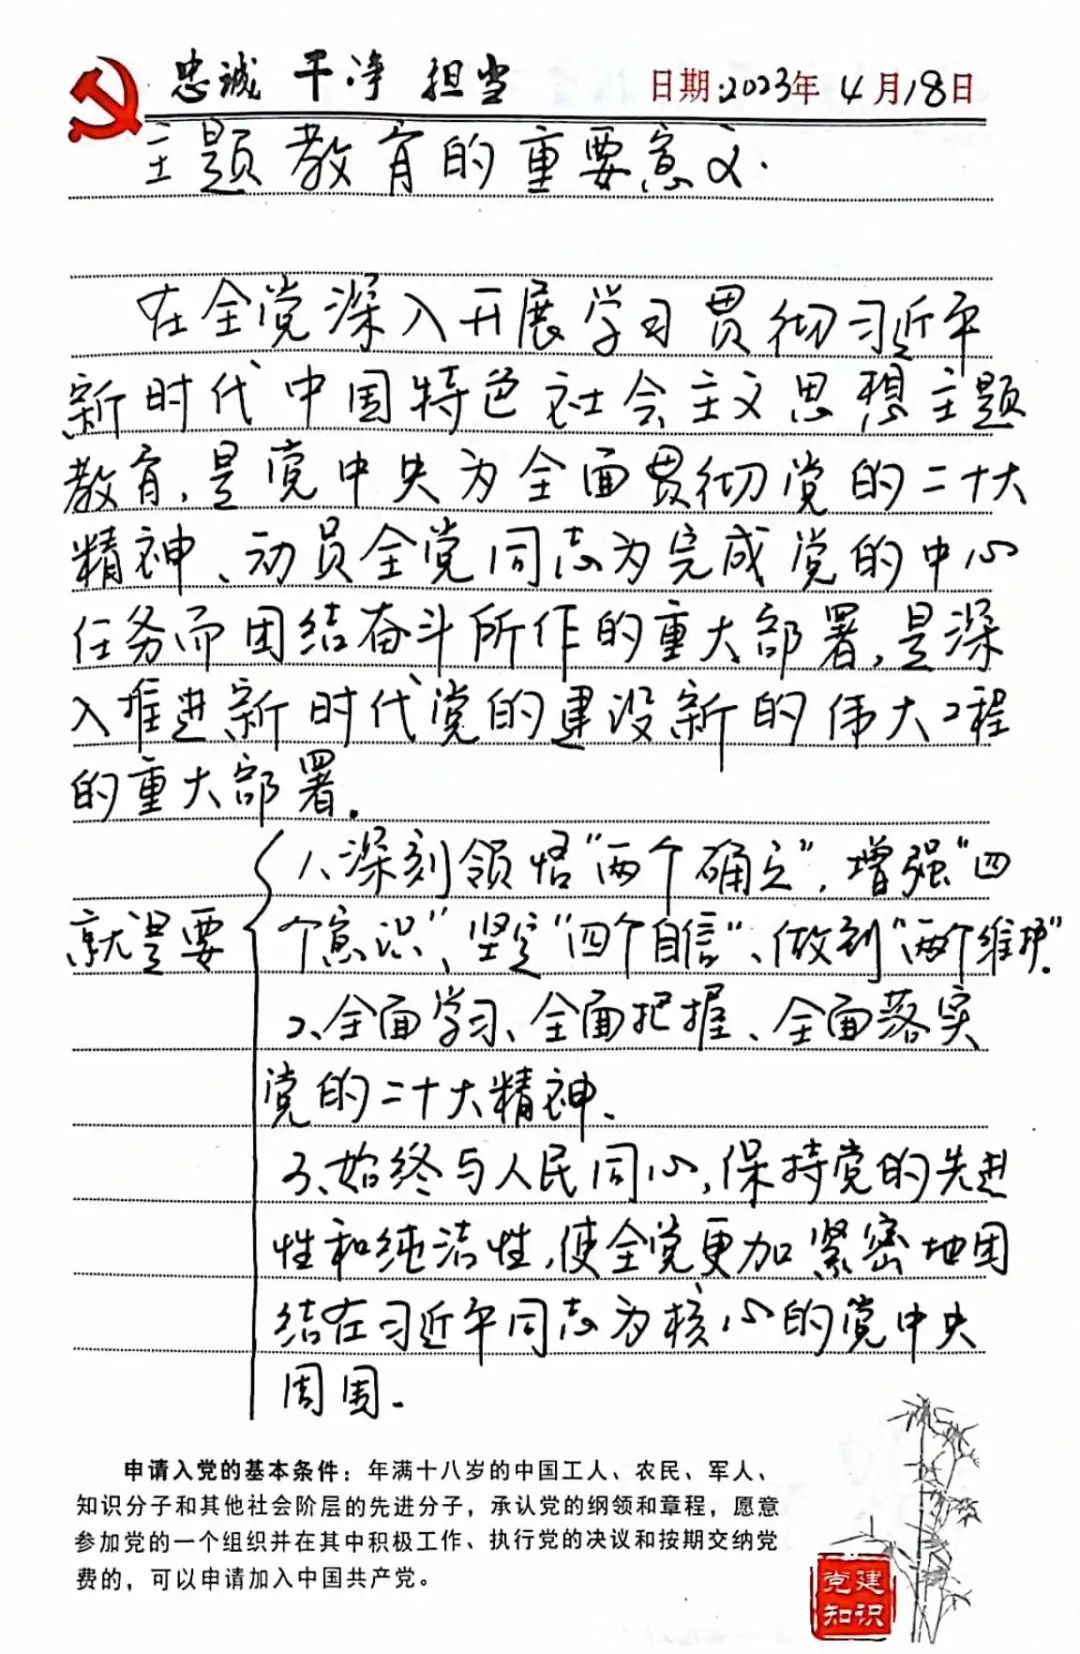 忠诚 干净 担当
日期:2023年4月18日
主题教育的重要意义.
在全党深入开展学习贯彻习近平
新时代中国特色社会主义思想主题
教育,是党中央为全面贯彻党的二十大
精神、动员全党同志为完成党的中心
任务而团结奋斗所作的重大部署,是深
入推进新时代党的建设新的伟大工程
的重大部署.
1、深刻领悟"两个确立",增强"四
就是要 个意识"、坚定"四个自信"、做到"两个维护".
2、全面学习、全面把握、全面落实
党的二十大精神、
3、始终与人民同心,保持党的先进
性和纯洁性,使全党更加紧密地团
结在习近平同志为核心的党中央
周围.
申请入党的基本条件:年满十八岁的中国工人、农民、军人、
知识分子和其他社会阶层的先进分子,承认党的纲领和章程,愿意
参加党的一个组织并在其中积极工作、执行党的决议和按期交纳党
费的,可以申请加入中国共产党。
党建
知识